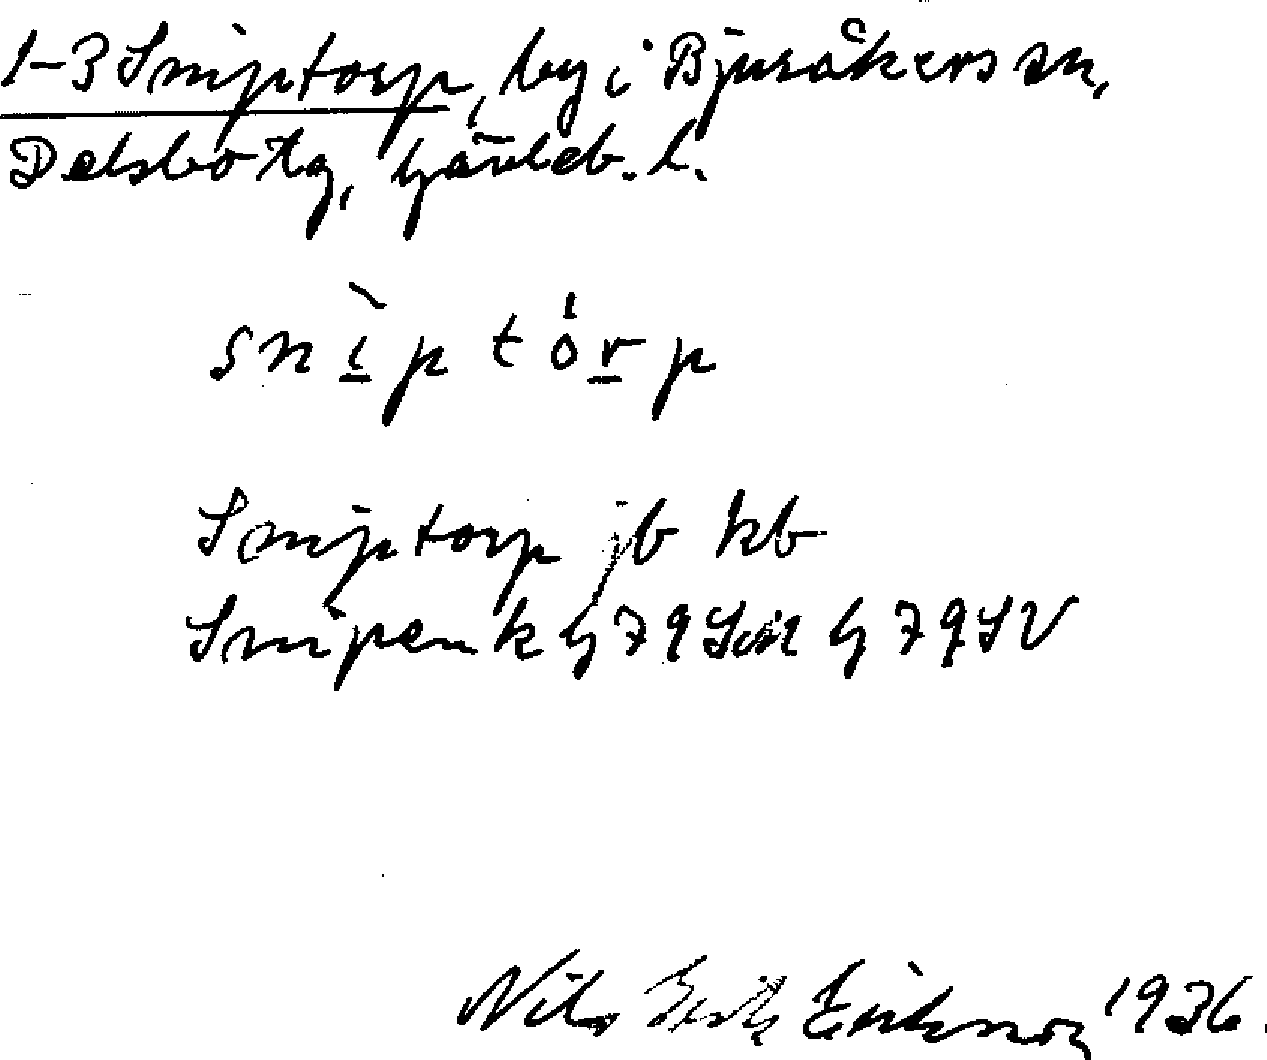 1-3 Sniptorp, by i Bjuråkers sn,
Delsbo tg, Gävleb. l.
snìptórp
Sniptorp jb kb
Snipen k G 79 G 79 SV
Nils Eriksson 1936.